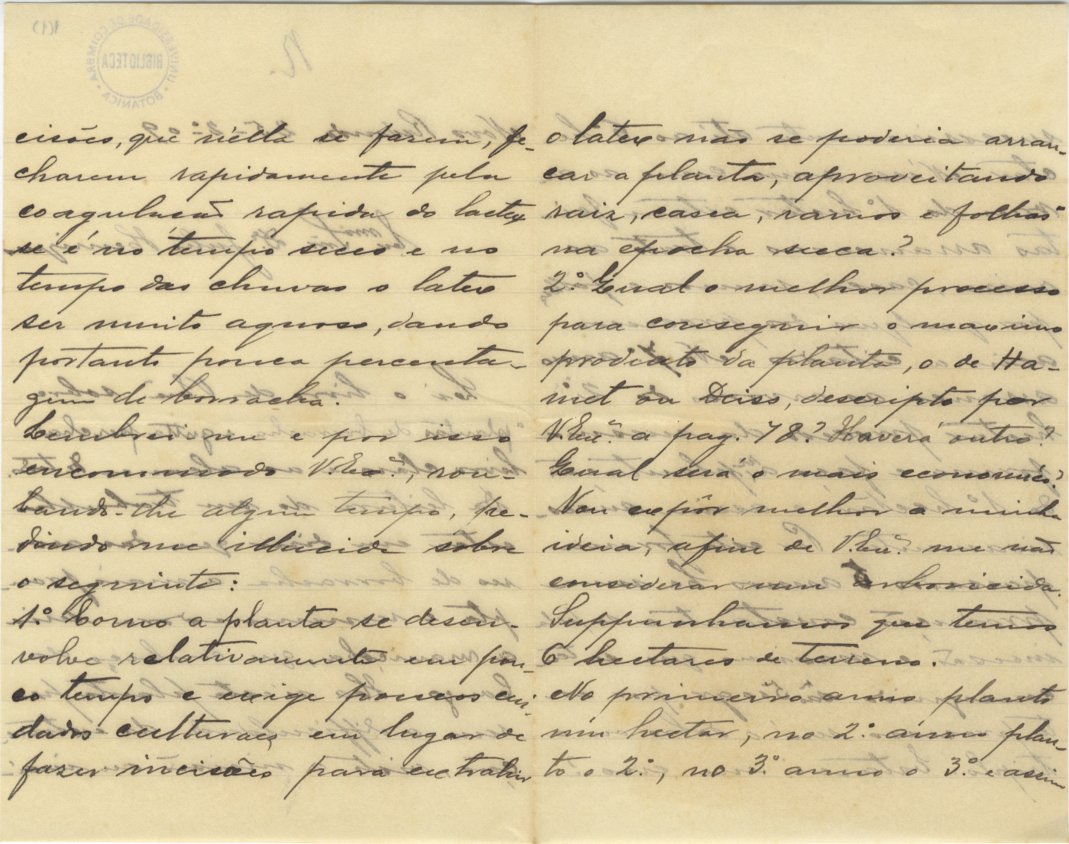 cisões, que n'ella se fazem, fe-
charem rapidamente pela
coagulação rapida do lactex
se é no tempo secco e no
tempo das chuvas o latex
ser muito aquoso, dando
portanto pouca percenta-
gem de borracha.
Lembrei-me e por isso
encommodo V. Exª., rou-
bando-lhe algum tempo, pe-
dindo me illucide sobre
o seguinte:
1º. Como a planta se desen-
volve relativamente em pou-
co tempo e exige poucos cui-
dados culturaes em lugar de
fazer incisões para extrahir
o latex não se poderia arran-
car a planta, aproveitando
raiz, casca, ramos e folhas
na epocha secca?
2º. Qual o melhor processo
para conseguir o maximo
producto da planta, o de Ha-
met ou Deiss, descripto por
V. Exª. a pag. 78? Haverá outro?
Qual será o mais economico?
Vou expôr melhor a minha
ideia, afim de V. Exª. me não
considerar um arboricida.
Suppunhamos que temos
6 hectares de terreno.
No primeiro anno planto
um hectar, no 2º. anno plan-
to o 2º., no 3º. anno o 3º. e assim
BIBLIOTECA
UNIVERSIDADE DE COIMBRA
BOTANICA